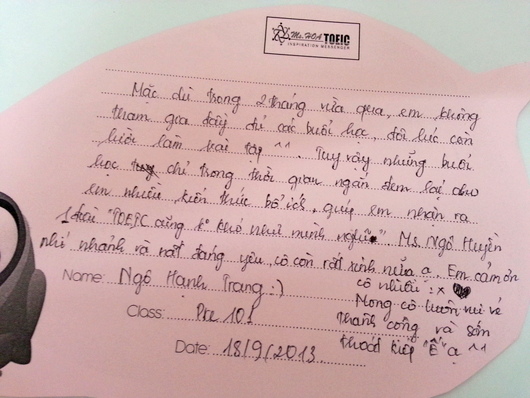 Ms. HOA TOEIC
INSPIRATION MESSENGER
Mặc dù trong 2 tháng vừa qua, em không
tham gia đầy đủ các buổi học, đôi lúc còn
lười làm bài tập ^^. Tuy vậy những buổi
học chỉ trong thời gian ngắn đem lại cho
em nhiều kiến thức bổ ích, giúp em nhận ra
1 điều "TOEIC cũng k° khó như mình nghĩ". Ms. Ngô Huyền
nhí nhảnh và rất đáng yêu, cô còn rất xinh nữa ạ. Em cảm ơn
cô nhiều :x
Name: Ngô Hạnh Trang :)
Mong cô luôn vui vẻ
Class: Pre 101
thành công và sớm
thoát kiếp "Ế" ạ ^^
Date: 18/9/2013